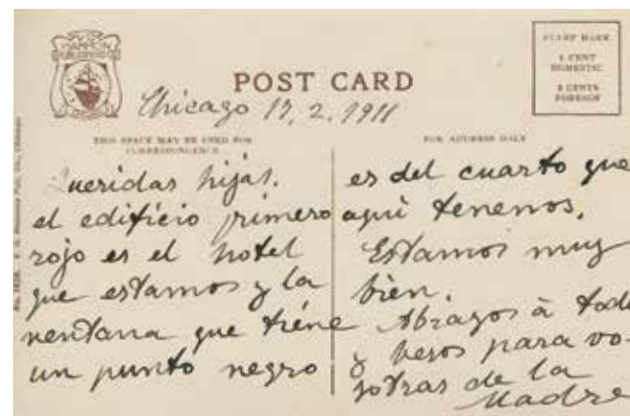 V.O.
HAMMON
PUBLISHING CO.
POST CARD
Chicago 17, 2. 1911
STAMP HERE
1 CENT
DOMESTIC
2 CENTS
FOREIGN
THIS SPACE MAY BE USED FOR
CORRESPONDENCE
FOR ADDRESS ONLY
Queridas hijas.
el edificio primero
rojo es el hotel
que estamos y la
nentana que tiene
un punto negro
es del cuarto que
aqui tenenos.
Estamos muy
bien.
Abrazos à tod
y besos para vo-
sotras de la
Madre